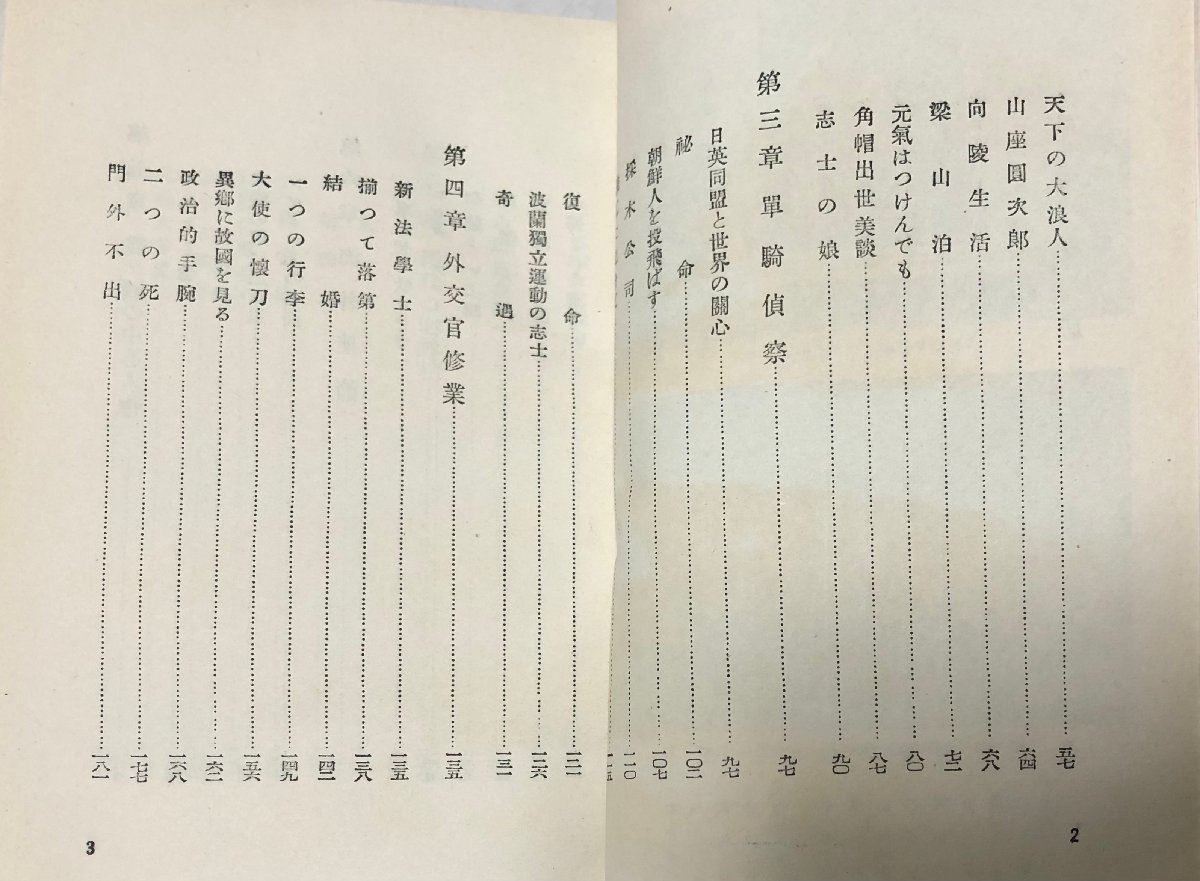 天下の大浪人……五七
山座圓次郎……六四
向陵生活……六八
梁山泊……七二
元氣はつけんでも……八〇
角帽出世美談……八七
志士の娘……九〇
第三章 單騎偵察……九七
日英同盟と世界の關心……九七
祕命……一〇二
朝鮮人を投飛ばす……一〇七
採木公司……一一〇
2
復命……一二一
波蘭獨立運動の志士……一二六
奇遇……一三一
第四章 外交官修業……一三五
新法學士……一三五
揃つて落第……一三八
結婚……一四二
一つの行李……一四九
大使の懷刀……一五六
異鄕に故國を見る……一六二
政治的手腕……一六八
二つの死……一七七
門外不出……一八一
3